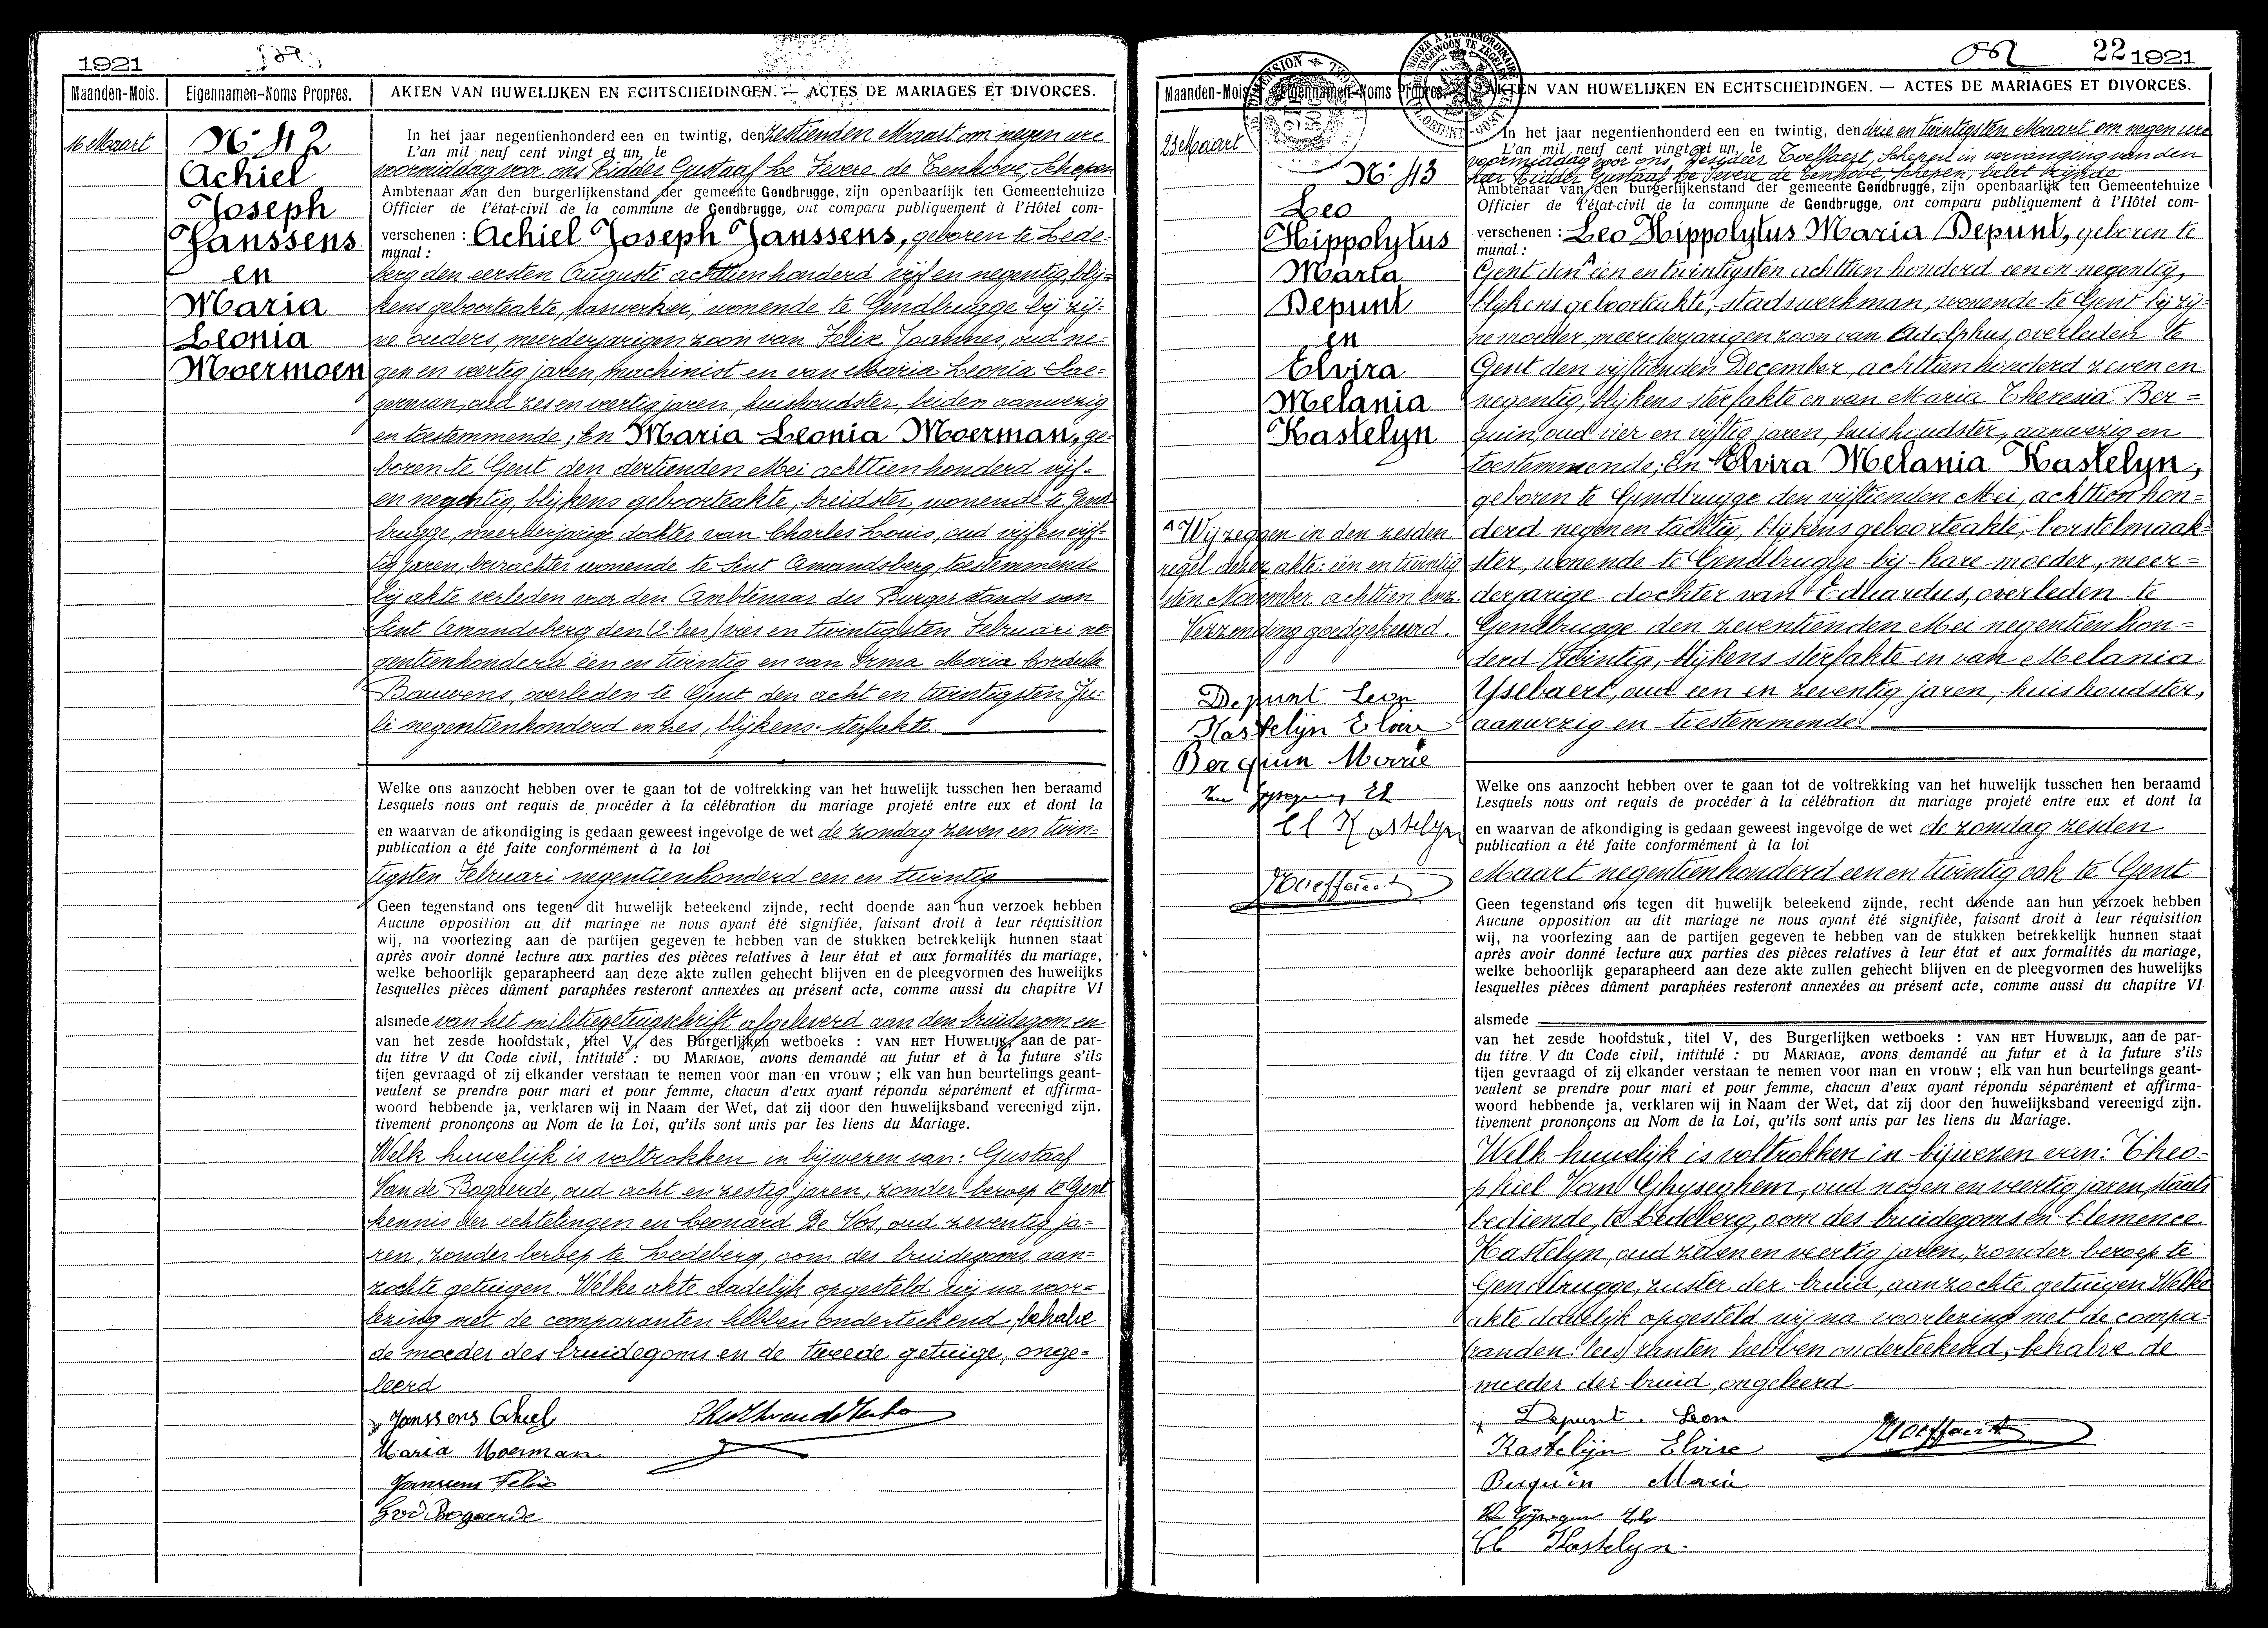 1921
Maanden-Mois.
Eigennamen-Noms Propres.
AKTEN VAN HUWELIJKEN EN ECHTSCHEIDINGEN. — ACTES DE MARIAGES ET DIVORCES.
16 Maart
N: 42
Achiel
Joseph
Janssens
en
Maria
Leonia
Moermoen
In het jaar negentienhonderd een en twintig, den zestienden Maart om negen ure
L'an mil neuf cent vingt et un, le
voormiddag voor ons Ridder Gustaaf Le Fevere de Tenhove, Schepen
Ambtenaar van den burgerlijkenstand der gemeente Gendbrugge, zijn openbaarlijk ten Gemeentehuize
Officier de l'état-civil de la commune de Gendbrugge, ont comparu publiquement à l'Hôtel com-
verschenen : Achiel Joseph Janssens, geboren te Lede-
munal :
berg den eersten Augusti achttien honderd vijf en negentig, blij-
kens geboorteakte, paswerker, wonende te Gendbrugge bij zij-
ne ouders, meerderjarigen zoon van Felix Joannes, oud ne-
gen en veertig jaren, machinist en van Maria Leonia Sae-
german, oud zes en veertig jaren, huishoudster, beiden aanwezig
en toestemmende; En Maria Leonia Moerman, ge-
boren te Gent den dertienden Mei achttienhonderd vijf-
en negentig, blijkens geboorteakte, breidster, wonende te Gend-
brugge, meerderjarige dochter van Charles Louis, oud vijf en vijf-
tig jaren, bewachter wonende te Sint Amandsberg, toestemmende
bij akte verleden voor den Ambtenaar des Burgerstands van
Sint Amandsberg den (2: lees) vier en twintigsten Februari ne-
gentienhonderd een en twintig en van Irma Maria Cordula
Bauwens, overleden te Gent den acht en twintigsten Ju-
li negentienhonderd en zes, blijkens sterfakte.
Welke ons aanzocht hebben over te gaan tot de voltrekking van het huwelijk tusschen hen beraamd
Lesquels nous ont requis de procéder à la célébration du mariage projeté entre eux et dont la
en waarvan de afkondiging is gedaan geweest ingevolge de wet de zondag zeven en twin-
publication a été faite conformément à la loi
tigsten Februari negentienhonderd een en twintig
Geen tegenstand ons tegen dit huwelijk beteekend zijnde, recht doende aan hun verzoek hebben
Aucune opposition au dit mariage ne nous ayant été signifiée, faisant droit à leur réquisition
wij, na voorlezing aan de partijen gegeven te hebben van de stukken betrekkelijk hunnen staat
après avoir donné lecture aux parties des pièces relatives à leur état et aux formalités du mariage,
welke behoorlijk geparapheerd aan deze akte zullen gehecht blijven en de pleegvormen des huwelijks
lesquelles pièces dûment paraphées resteront annexées au présent acte, comme aussi du chapitre VI
alsmede van het militiegetuigschrift afgeleverd aan den bruidegom en
van het zesde hoofdstuk, titel V, des Burgerlijken wetboeks : VAN HET HUWELIJK, aan de par-
du titre V du Code civil, intitulé : DU MARIAGE, avons demandé au futur et à la future s'ils
tijen gevraagd of zij elkander verstaan te nemen voor man en vrouw ; elk van hun beurtelings geant-
veulent se prendre pour mari et pour femme, chacun d'eux ayant répondu séparément et affirma-
woord hebbende ja, verklaren wij in Naam der Wet, dat zij door den huwelijksband vereenigd zijn.
tivement prononçons au Nom de la Loi, qu'ils sont unis par les liens du Mariage.
Welk huwelijk is voltrokken in bijwezen van: Gustaaf
Van de Bogaerde, oud acht en zestig jaren, zonder beroep te Gent
kennis der echtelingen en Leonard De Vos, oud zeventig ja-
ren, zonder beroep te Ledeberg, oom des bruidegoms, aan-
zochte getuigen. Welke akte dadelijk opgesteld wij na voor-
lezing met de comparanten hebben onderteekend, behalve
de moeder des bruidegoms en de tweede getuige, onge-
leerd
Janssens Achiel
Maria Moerman
Janssens Felix
Gvd Bogaerde
22 1921
Maanden-Mois
Eigennamen-Noms Propres.
AKTEN VAN HUWELIJKEN EN ECHTSCHEIDINGEN. — ACTES DE MARIAGES ET DIVORCES.
23 Maart
N: 43
Leo
Hippolytus
Maria
Depunt
en
Elvira
Melania
Kastelyn
A Wij zeggen in den zesden
regel dezer akte: een en twintig
sten November achttien enz.
Verzending goedgekeurd.
Depunt Leon
Kastelijn Elvire
Berquin Marie
Cl Kastelyn
In het jaar negentienhonderd een en twintig, den drie en twintigsten Maart om negen ure
L'an mil neuf cent vingt et un, le
voormiddag voor ons, Desideer Toeffaert, Schepen in vervanging van den
heer Ridder Gustaaf Le Fevere de Tenhove, Schepen, belet zijnde
Ambtenaar van den burgerlijkenstand der gemeente Gendbrugge, zijn openbaarlijk ten Gemeentehuize
Officier de l'état-civil de la commune de Gendbrugge, ont comparu publiquement à l'Hôtel com-
verschenen : Leo Hippolytus Maria Depunt, geboren te
munal :
Gent den A een en twintigsten achttien honderd een en negentig,
blijkens geboorteakte, stadswerkman, wonende te Gent bij zij-
ne moeder, meerderjarigen zoon van Adolphus, overleden te
Gent den vijftienden December, achttien honderd zeven en
negentig, blijkens sterfakte en van Maria Theresia Ber=
quin, oud vier en vijftig jaren, huishoudster, aanwezig en
toestemmende; En Elvira Melania Kastelyn,
geboren te Gendbrugge den vijftienden Mei, achttien hon-
derd negen en tachtig, blijkens geboorteakte, borstelmaak-
ster, wonende te Gendbrugge bij hare moeder, meer=
derjarige dochter van Eduardus, overleden te
Gendbrugge den zeventienden Mei negentien hon=
derd twintig, blijkens sterfakte en van Melania
Ysebaert, oud een en zeventig jaren, huishoudster,
aanwezig en toestemmende.
Welke ons aanzocht hebben over te gaan tot de voltrekking van het huwelijk tusschen hen beraamd
Lesquels nous ont requis de procéder à la célébration du mariage projeté entre eux et dont la
en waarvan de afkondiging is gedaan geweest ingevolge de wet de zondag zesden
publication a été faite conformément à la loi
Maart negentienhonderd een en twintig ook te Gent
Geen tegenstand ons tegen dit huwelijk beteekend zijnde, recht doende aan hun verzoek hebben
Aucune opposition au dit mariage ne nous ayant été signifiée, faisant droit à leur réquisition
wij, na voorlezing aan de partijen gegeven te hebben van de stukken betrekkelijk hunnen staat
après avoir donné lecture aux parties des pièces relatives à leur état et aux formalités du mariage,
welke behoorlijk geparapheerd aan deze akte zullen gehecht blijven en de pleegvormen des huwelijks
lesquelles pièces dûment paraphées resteront annexées au présent acte, comme aussi du chapitre VI
alsmede
van het zesde hoofdstuk, titel V, des Burgerlijken wetboeks : VAN HET HUWELIJK, aan de par-
du titre V du Code civil, intitulé : DU MARIAGE, avons demandé au futur et à la future s'ils
tijen gevraagd of zij elkander verstaan te nemen voor man en vrouw ; elk van hun beurtelings geant-
veulent se prendre pour mari et pour femme, chacun d'eux ayant répondu séparément et affirma-
woord hebbende ja, verklaren wij in Naam der Wet, dat zij door den huwelijksband vereenigd zijn.
tivement prononçons au Nom de la Loi, qu'ils sont unis par les liens du Mariage.
Welk huwelijk is voltrokken in bijwezen van: Theo-
phiel Van Ghyseghem, oud negen en veertig jaren, staats
bediende, te Ledeberg, oom des bruidegoms en Clemence
Kastelyn, oud zeven en veertig jaren, zonder beroep te
Gendbrugge, zuster der bruid, aanzochte getuigen Welke
akte dadelijk opgesteld wij na voorlezing met de compa-
(randen: lees) ranten hebben onderteekend, behalve de
moeder der bruid, ongeleerd
Depunt. Leon.
Kastelijn Elvire
Berquin Marie
Cl Kastelyn.